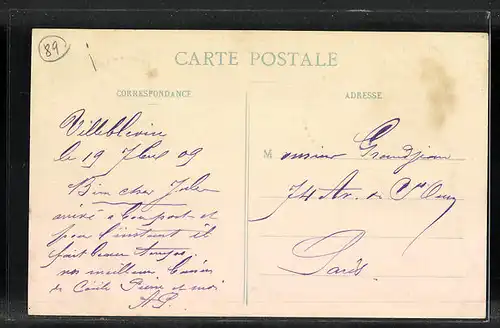 89
CARTE POSTALE
CORRESPONDANCE
ADRESSE
Villeblevin
le 19 7bre 09
Bien cher Jules
arrivé à bon port et
pour l'instant il
fait beau temps
nos meilleurs baisers
de Cécile Pierre et moi
A.P.
Monsieur Grandjean
74 Av. de St Ouen
Paris